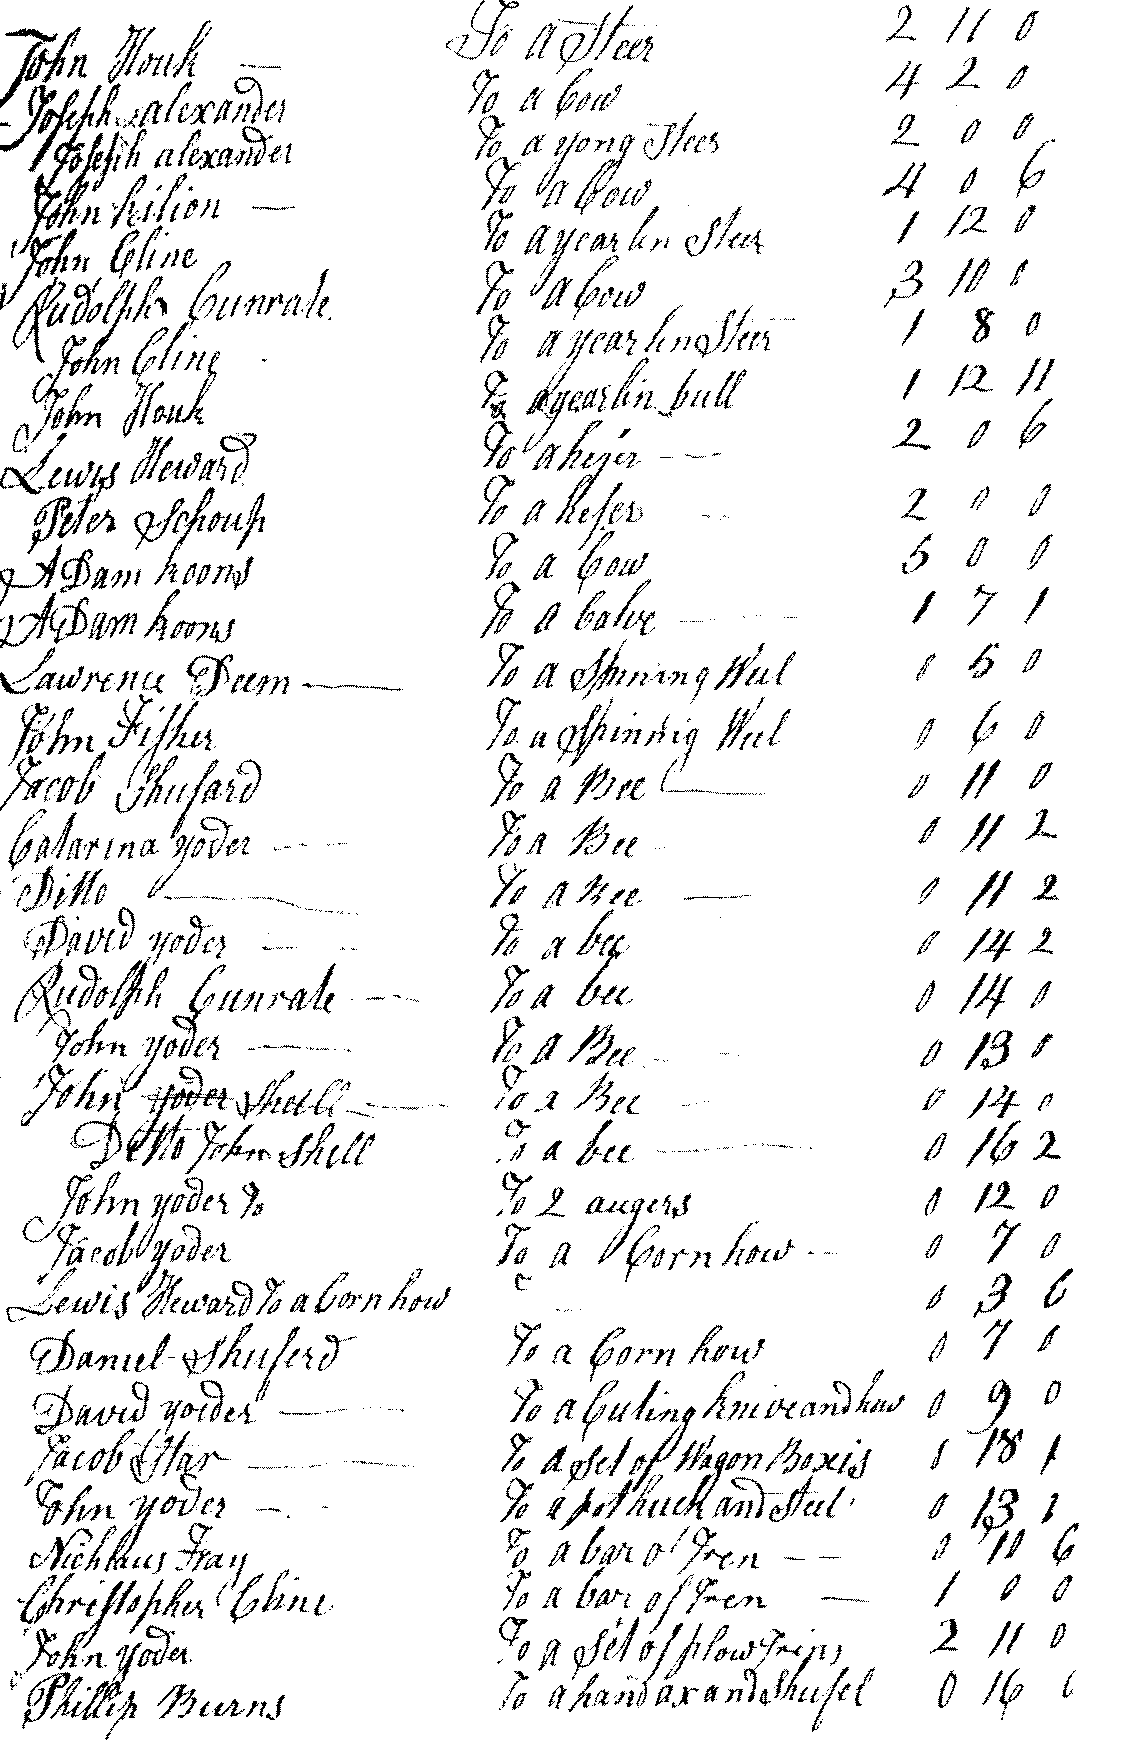 John Houk — To a Steer 2 11 0
Joseph alexander To a Cow 4 2 0
Joseph alexander To a yong Steer 2 0 0
John Kilion — To a Cow 4 0 6
John Cline To a yearlin Steer 1 12 0
Rudolph Cunrate. To a Cow 3 10 0
John Cline To a yearlin Steer 1 8 0
John Houk To a yearlin bull 1 12 11
Lewis Heward To a heifer — 2 0 6
Peter Schoup To a hefer 2 0 0
ADam Koons To a Cow 5 0 0
ADam Koons To a Calve 1 7 1
Lawrence Deem — To a Spining Weel 0 5 0
John Fisher To a Spinnig Weel 0 6 0
Jacob Shufard To a Bee 0 11 0
Catarina yoder To a Bee 0 11 2
Ditto To a Bee — 0 11 2
David yoder To a bee 0 14 2
Rudolph Cunrate To a bee 0 14 0
John yoder — To a Bee 0 13 0
John yoder Shell — To a Bee 0 14 0
Ditto John Shell To a bee 0 16 2
John yoder To To 2 augers 0 12 0
Jacob yoder To a Corn how 0 7 0
Lewis Heward To a Corn how 0 3 6
Daniel Shuferd To a Corn how 0 7 0
David yoder To a Cuting knive and how 0 9 0
Jacob Star To a Set of Wagon Boxis 1 18 1
John yoder To a pot huck and Steel 0 13 1
Nichlaus Fray To a bar of Iren 0 10 6
Christopher Cline To a bar of Iren 1 0 0
John yoder To a Set of plow Irins 2 11 0
Phillip Burns To a hand ax and Shufel 0 16